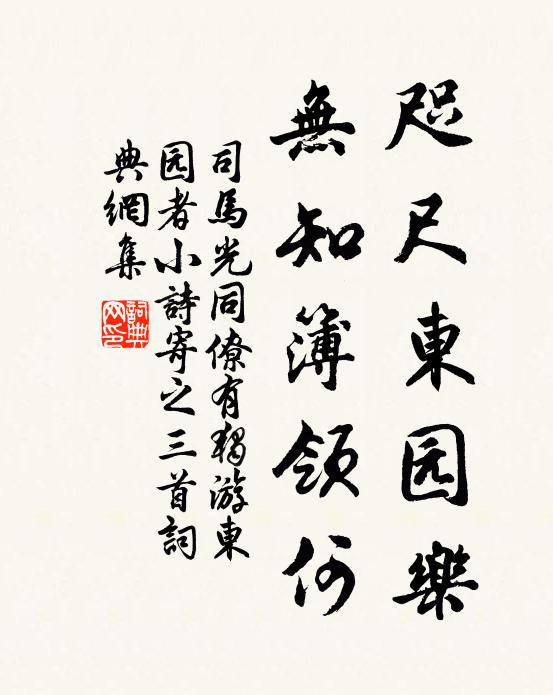 咫尺东园樂
無知簿領何
司馬光同僚有獨游東
园者小詩寄之三首詞
典網集
詞典网印